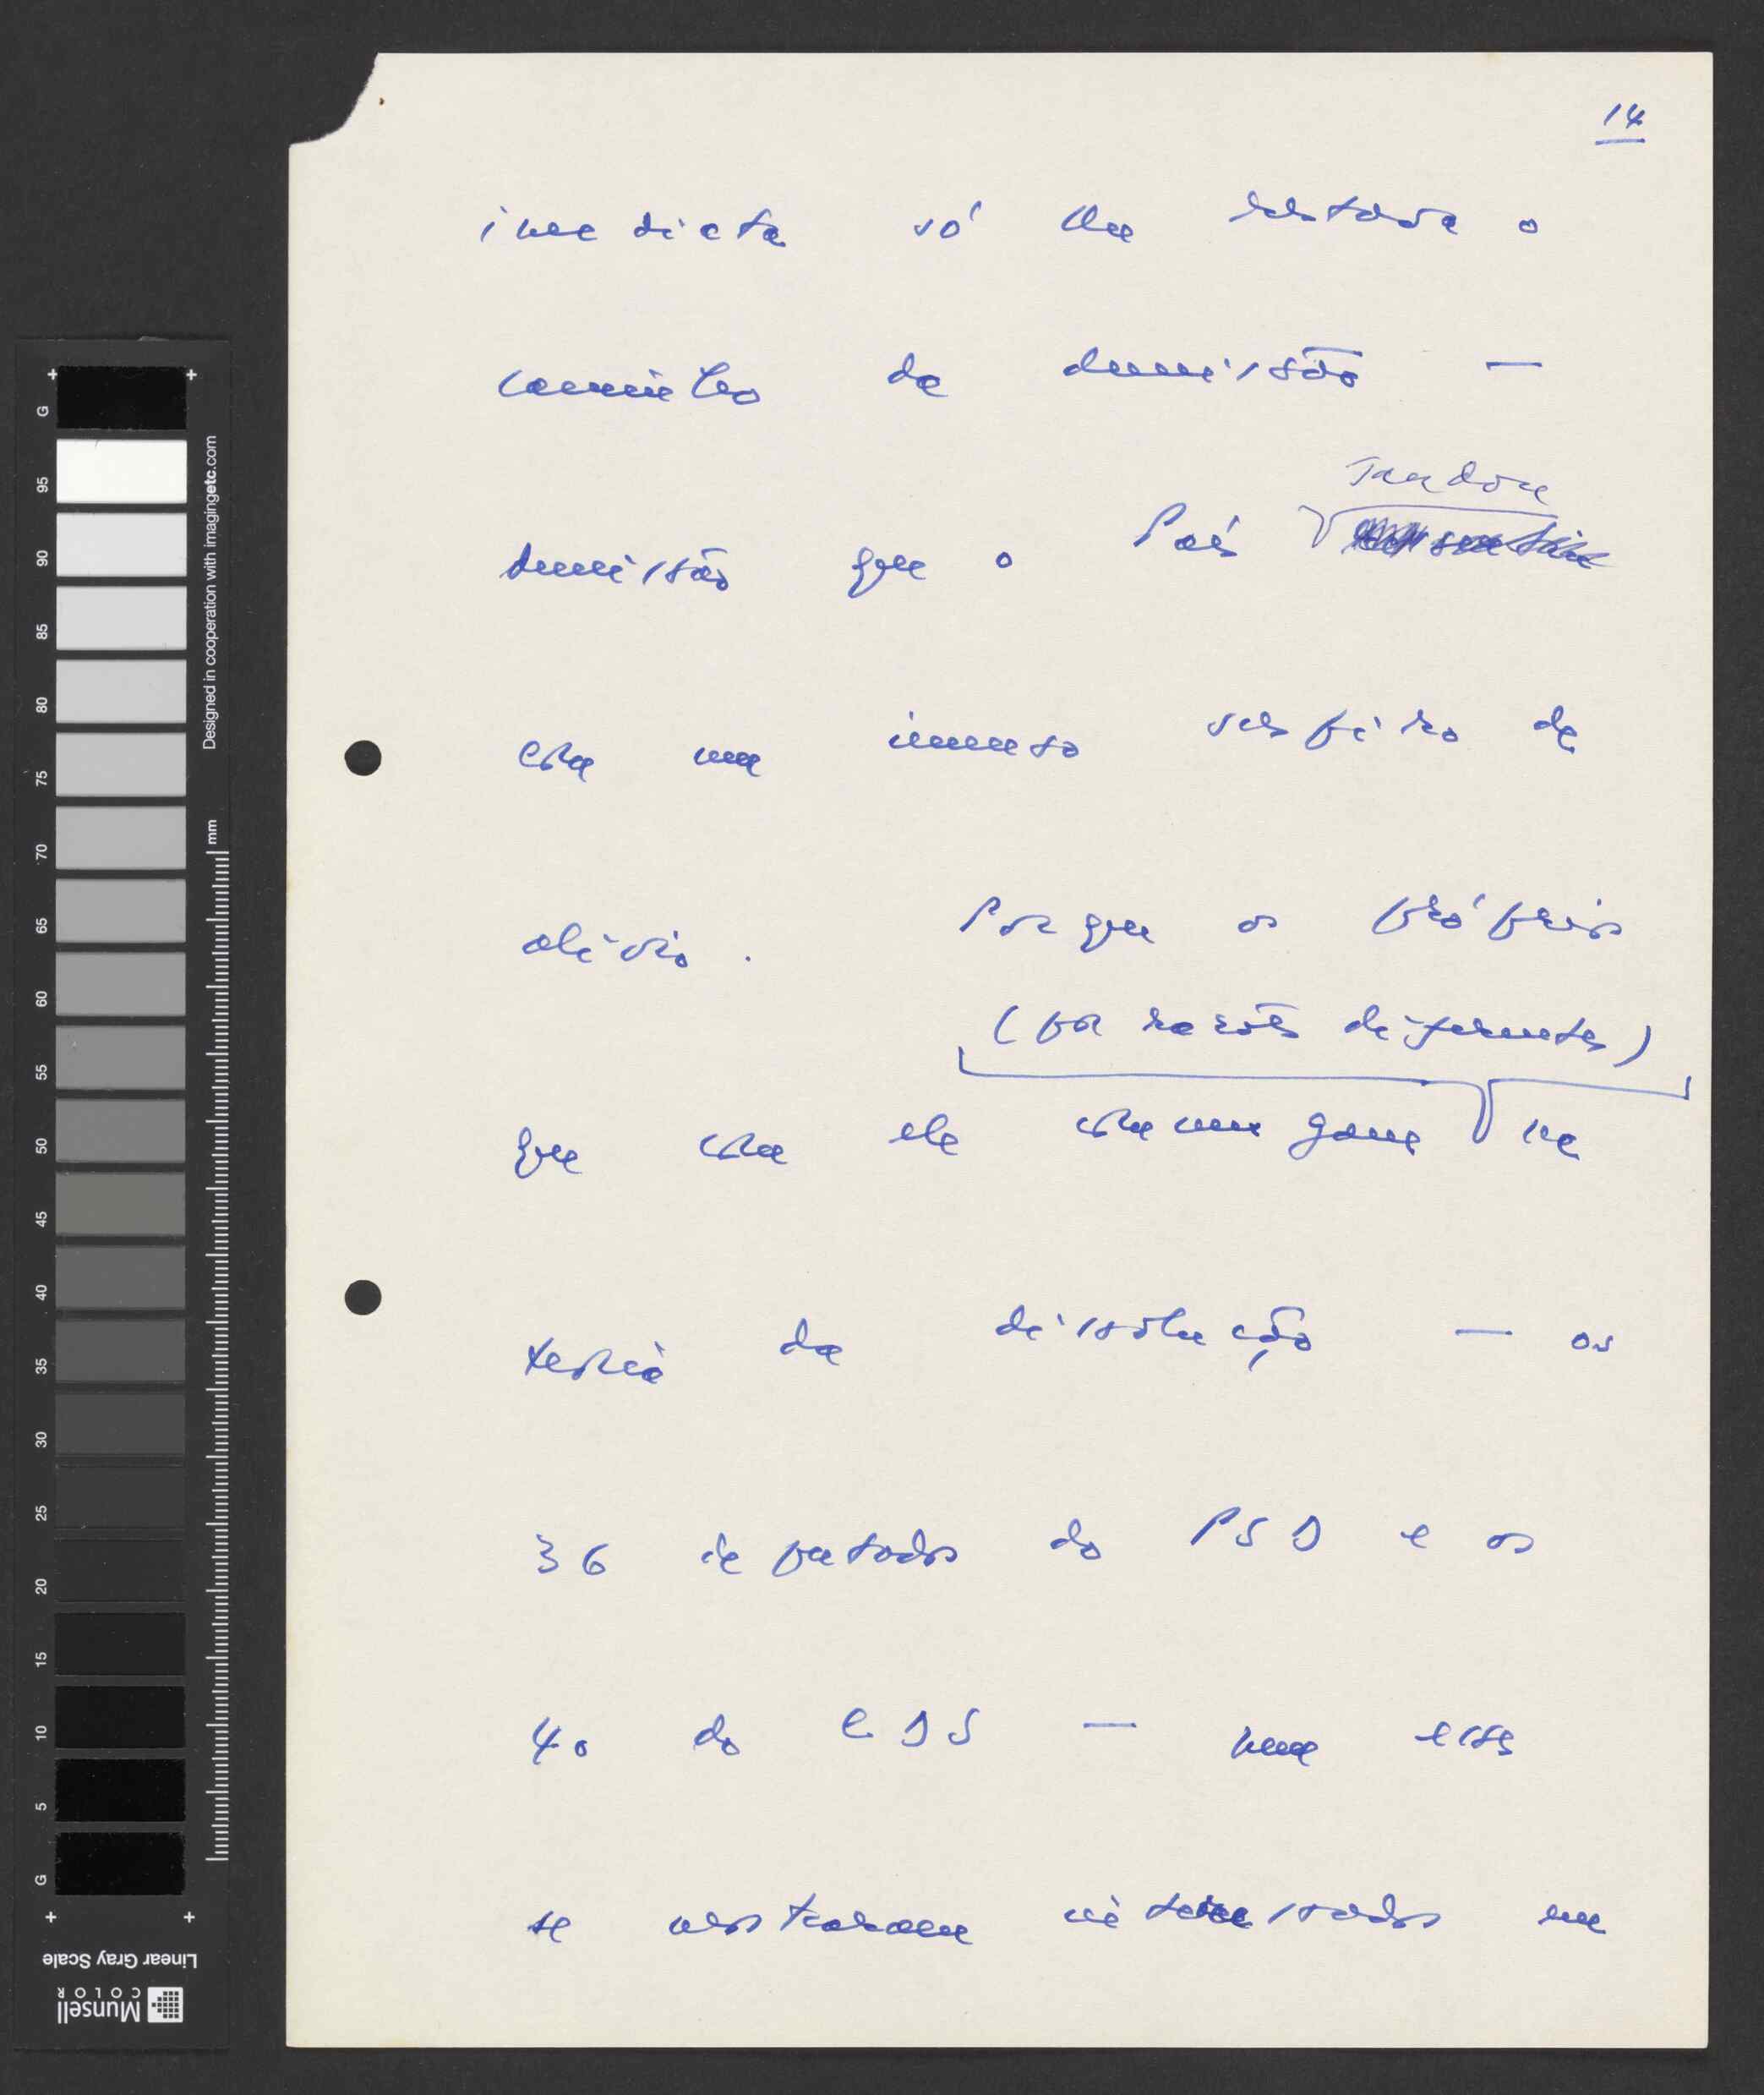 14
imediata só lhe restava o
caminho da demissão —
saudou
demissão que o País
com um imenso suspiro de
alívio. Porque os próprios
(por razões diferentes)
que com ele comungam na
teoria da dissolução — os
36 deputados do PSD e os
40 do CDS — nem esses
se mostraram interessados em
G
95
90
85
80
75
70
65
60
55
50
45
40
35
30
25
20
15
10
5
G
Designed in cooperation with imagingetc.com
mm
Linear Gray Scale
Munsell
COLOR